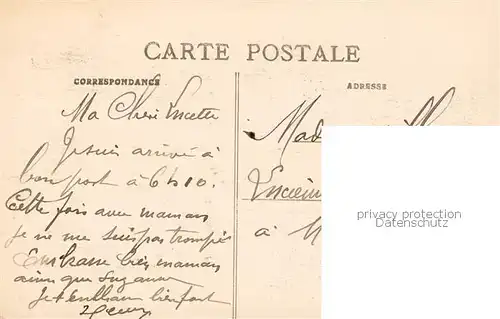 CARTE POSTALE
CORRESPONDANCE
ADRESSE
Ma Cheri Lucette
Je suis arrivé à
bon port à 6 h 10.
Cette fois avec maman
je ne me suis pas trompée
Embrasse bien maman
ainsi que Suzanne
Je t'embrasse bien fort
Mad
à
privacy protection
Datenschutz